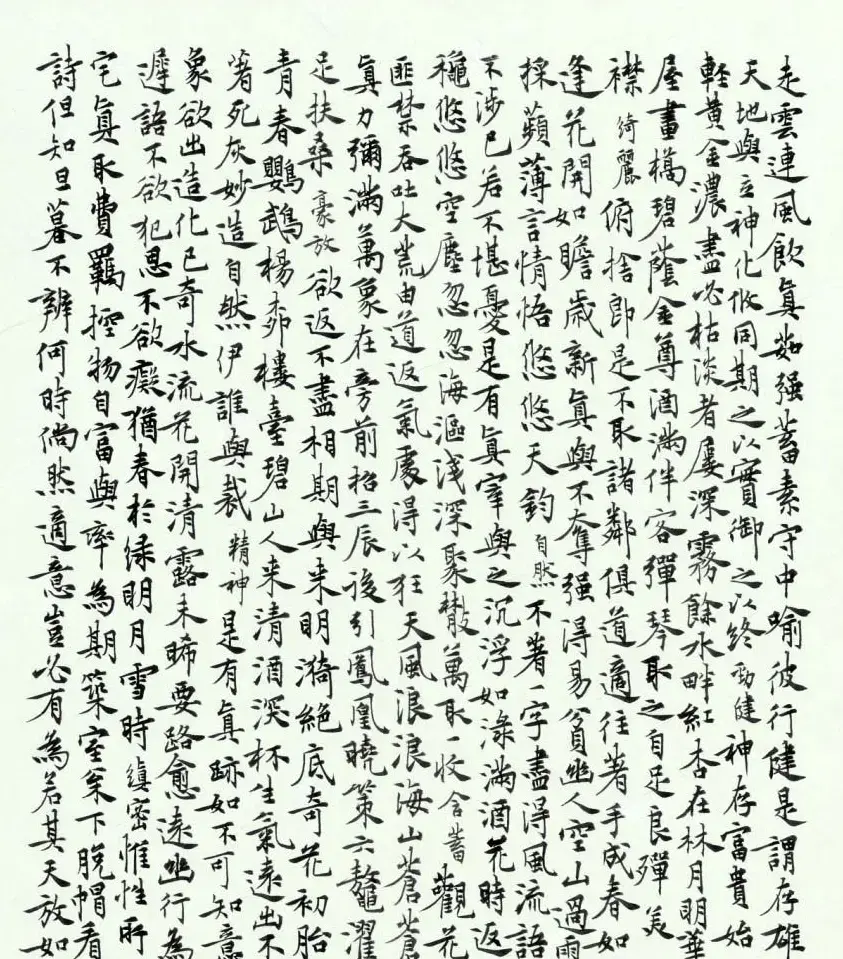 走雲連風飲眞茹强蓄素守中喻彼行健是謂存雄
天地與立神化攸同期之以實御之以終勁健神存富貴始
軽黄金濃盡必枯淡者屢深霧餘水畔紅杏在林月明華
屋畫橋碧蔭金尊酒滿伴客彈琴取之自足良殫美
襟綺麗俯捨即是不取諸鄰俱道適往著手成春如
逢花開如瞻歲新眞與不奪强得易貧幽人空山過雨
採蘋薄言情悟悠悠天鈞自然不著一字盡得風流語
不涉已若不堪憂是有眞宰與之沉浮如淥滿酒花時返
穐悠悠空塵忽忽海漚淺深聚散萬取一收含蓄觀花
匪禁吞吐大荒由道返氣處得以狂天風浪浪海山蒼蒼
眞力彌滿萬象在旁前招三辰後引鳳凰曉策六鰲濯
足扶桑豪放欲返不盡相期與来明漪絕底奇花初胎
青春鸚鵡楊柳樓臺碧山人来清酒深杯生氣遠出不
著死灰妙造自然伊誰與裁精神是有眞跡如不可知意
象欲出造化已奇水流花開清露未晞要路愈遠幽行為
遲語不欲犯思不欲癡猶春於緑明月雪時縝密惟性所
宅眞取費羈控物自富與率為期築室案下脫帽看
詩但知旦暮不辨何時倘然適意豈必有為若其天放如